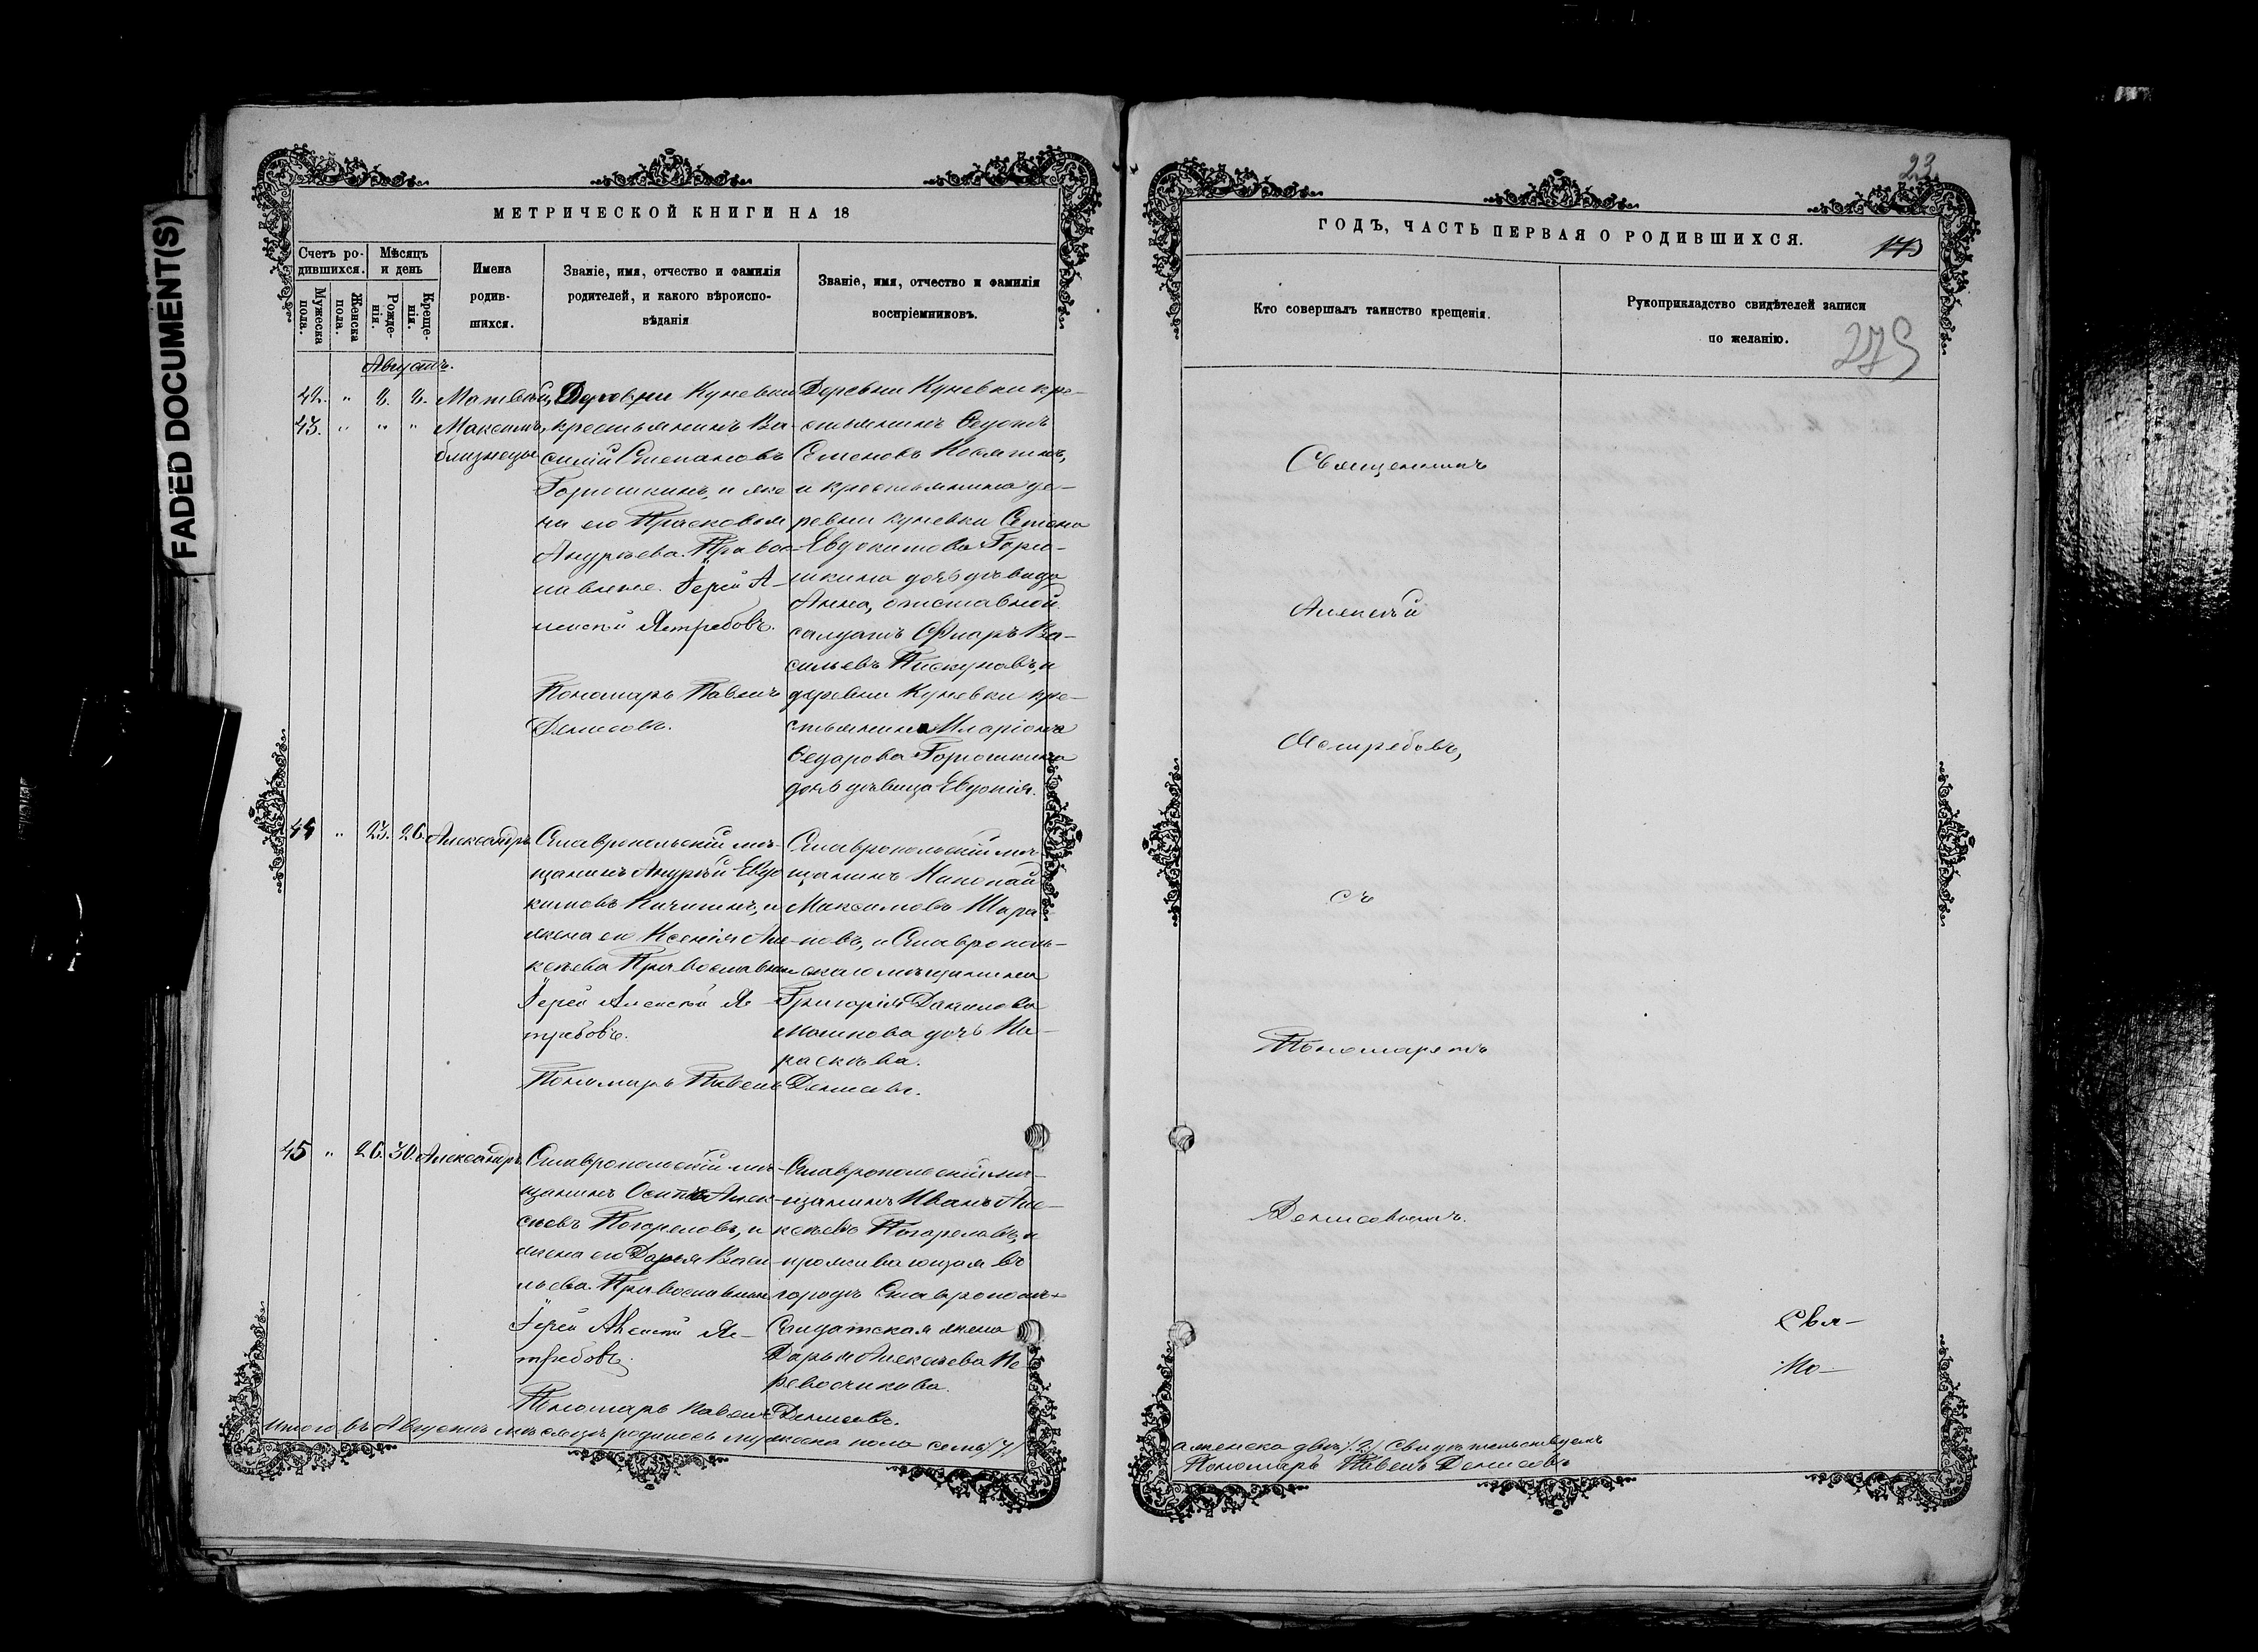 FADED DOCUMENT(S)
МЕТРИЧЕСКОЙ КНИГИ НА 18
Счетъ ро-
дившихся.
Мѣсяцъ
и день
Имена
родив-
шихся.
Званіе, имя, отчество и фамилія
родителей, и какого вѣроиспо-
вѣданія
Званіе, имя, отчество и фамилія
воспріемниковъ.
Мужеска
пола.
Женска
пола.
Рожде-
нія.
Креще-
нія.
Августъ.
42. " 8. 8. Матвѣй,
43. " " " Максимъ,
близнецы
Деревни Куневки
крестьянинъ Ва-
силій Степановъ
Горюшкинъ, и же-
на его Прасковья
Андреева. Правос-
лавные. Іерей А-
лексѣй Ястребовъ.
Пономарь Павелъ
Денисовъ.
Деревни Куневки кре-
стьянинъ Ѳедотъ
Семеновъ
и крестьянина де-
ревни Куневки Семена
Евдокимова Горю-
шкина дочь дѣвица
Анна, отставной
солдатъ Ѳларъ Ва-
сильевъ Пискуновъ, и
деревни Куневки кре-
стьянина Иларіона
Ѳедорова Горюшкина
дочь дѣвица Евдокія.
44 " 23. 26. Александръ
Ставропольскій мѣ-
щанинъ Андрей Евдо
кимовъ Кичигинъ, и
жена его Ксенія Але-
ксѣева Православные
Іерей Алексѣй Яс-
требовъ.
Пономарь Павелъ Денисовъ.
Ставропольскій мѣ-
щанинъ Николай
Максимовъ Шара
повъ, и Ставрополь-
скаго мѣщанина
Григорія Данилова
дочь Па-
раскѣва.
45 " 26. 30. Александръ
Ставропольскій мѣ-
щанинъ Осипъ Алек-
сѣевъ Погореловъ, и
жена его Дарья Васи-
льева. Православные
Іерей Алексѣй Яс-
требовъ.
Пономарь Павелъ Денисовъ.
Ставропольскій мѣ-
щанинъ Иванъ Але-
ксѣевъ Погореловъ, и
проживающая въ
городѣ Ставрополѣ
Солдатская жена
Дарья Алексѣева Пе-
ревосчикова.
Итого въ Августѣ мѣсяцѣ родилось мужеска пола семь /7/
23.
ГОДЪ, ЧАСТЬ ПЕРВАЯ О РОДИВШИХСЯ.
173
Кто совершалъ таинство крещенія.
Рукоприкладство свидѣтелей записи
по желанію.
Священникъ
Алексѣй
Ястребовъ,
съ
Пономаремъ
Денисовымъ.
Свя-
По-
а женска двѣ /2/ Свидѣтельствуемъ
Пономарь Павелъ Денисовъ